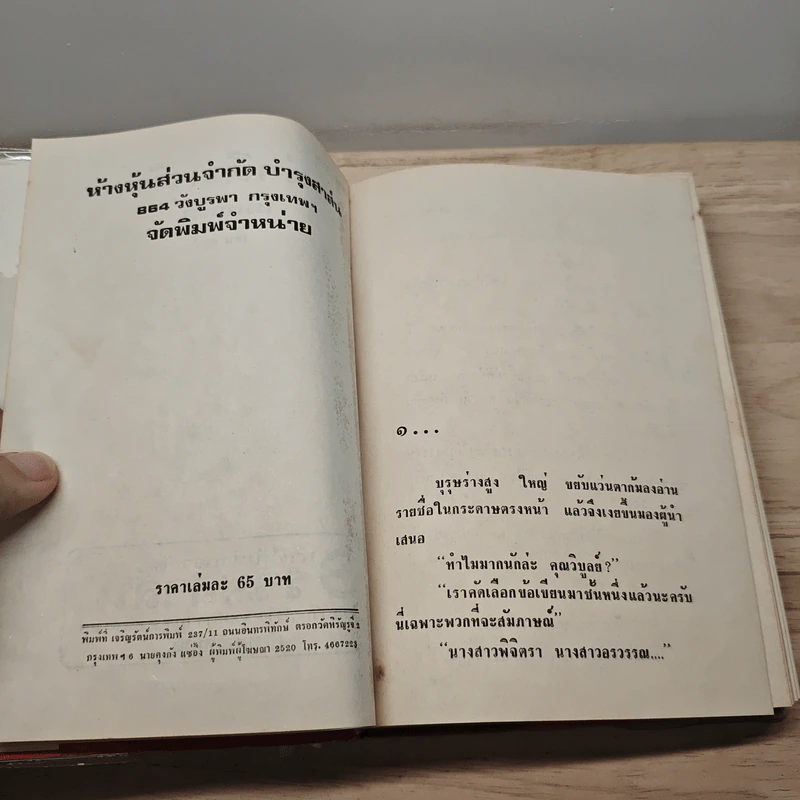 ห้างหุ้นส่วนจำกัด บำรุงสาส์น
864 วังบูรพา กรุงเทพฯ
จัดพิมพ์จำหน่าย
ราคาเล่มละ 65 บาท
พิมพ์ที่ เจริญรัตน์การพิมพ์ 237/11 ถนนอินทรพิทักษ์ ตรอกวัดหิรัญรูจี 2
กรุงเทพฯ 6 นายคุงกัง แซ่อึ้ง ผู้พิมพ์ผู้โฆษณา 2520 โทร. 4667223
๑...
บุรุษร่างสูง ใหญ่ ขยับแว่นตาก้มลงอ่าน
รายชื่อในกระดาษตรงหน้า แล้วจึงเงยขึ้นมองผู้นำ
เสนอ
“ทำไมมากนักล่ะ คุณวิบูลย์?”
“เราคัดเลือกข้อเขียนมาชั้นหนึ่งแล้วนะครับ
นี่เฉพาะพวกที่จะสัมภาษณ์”
“นางสาวพิจิตรา นางสาวอรวรรณ....”